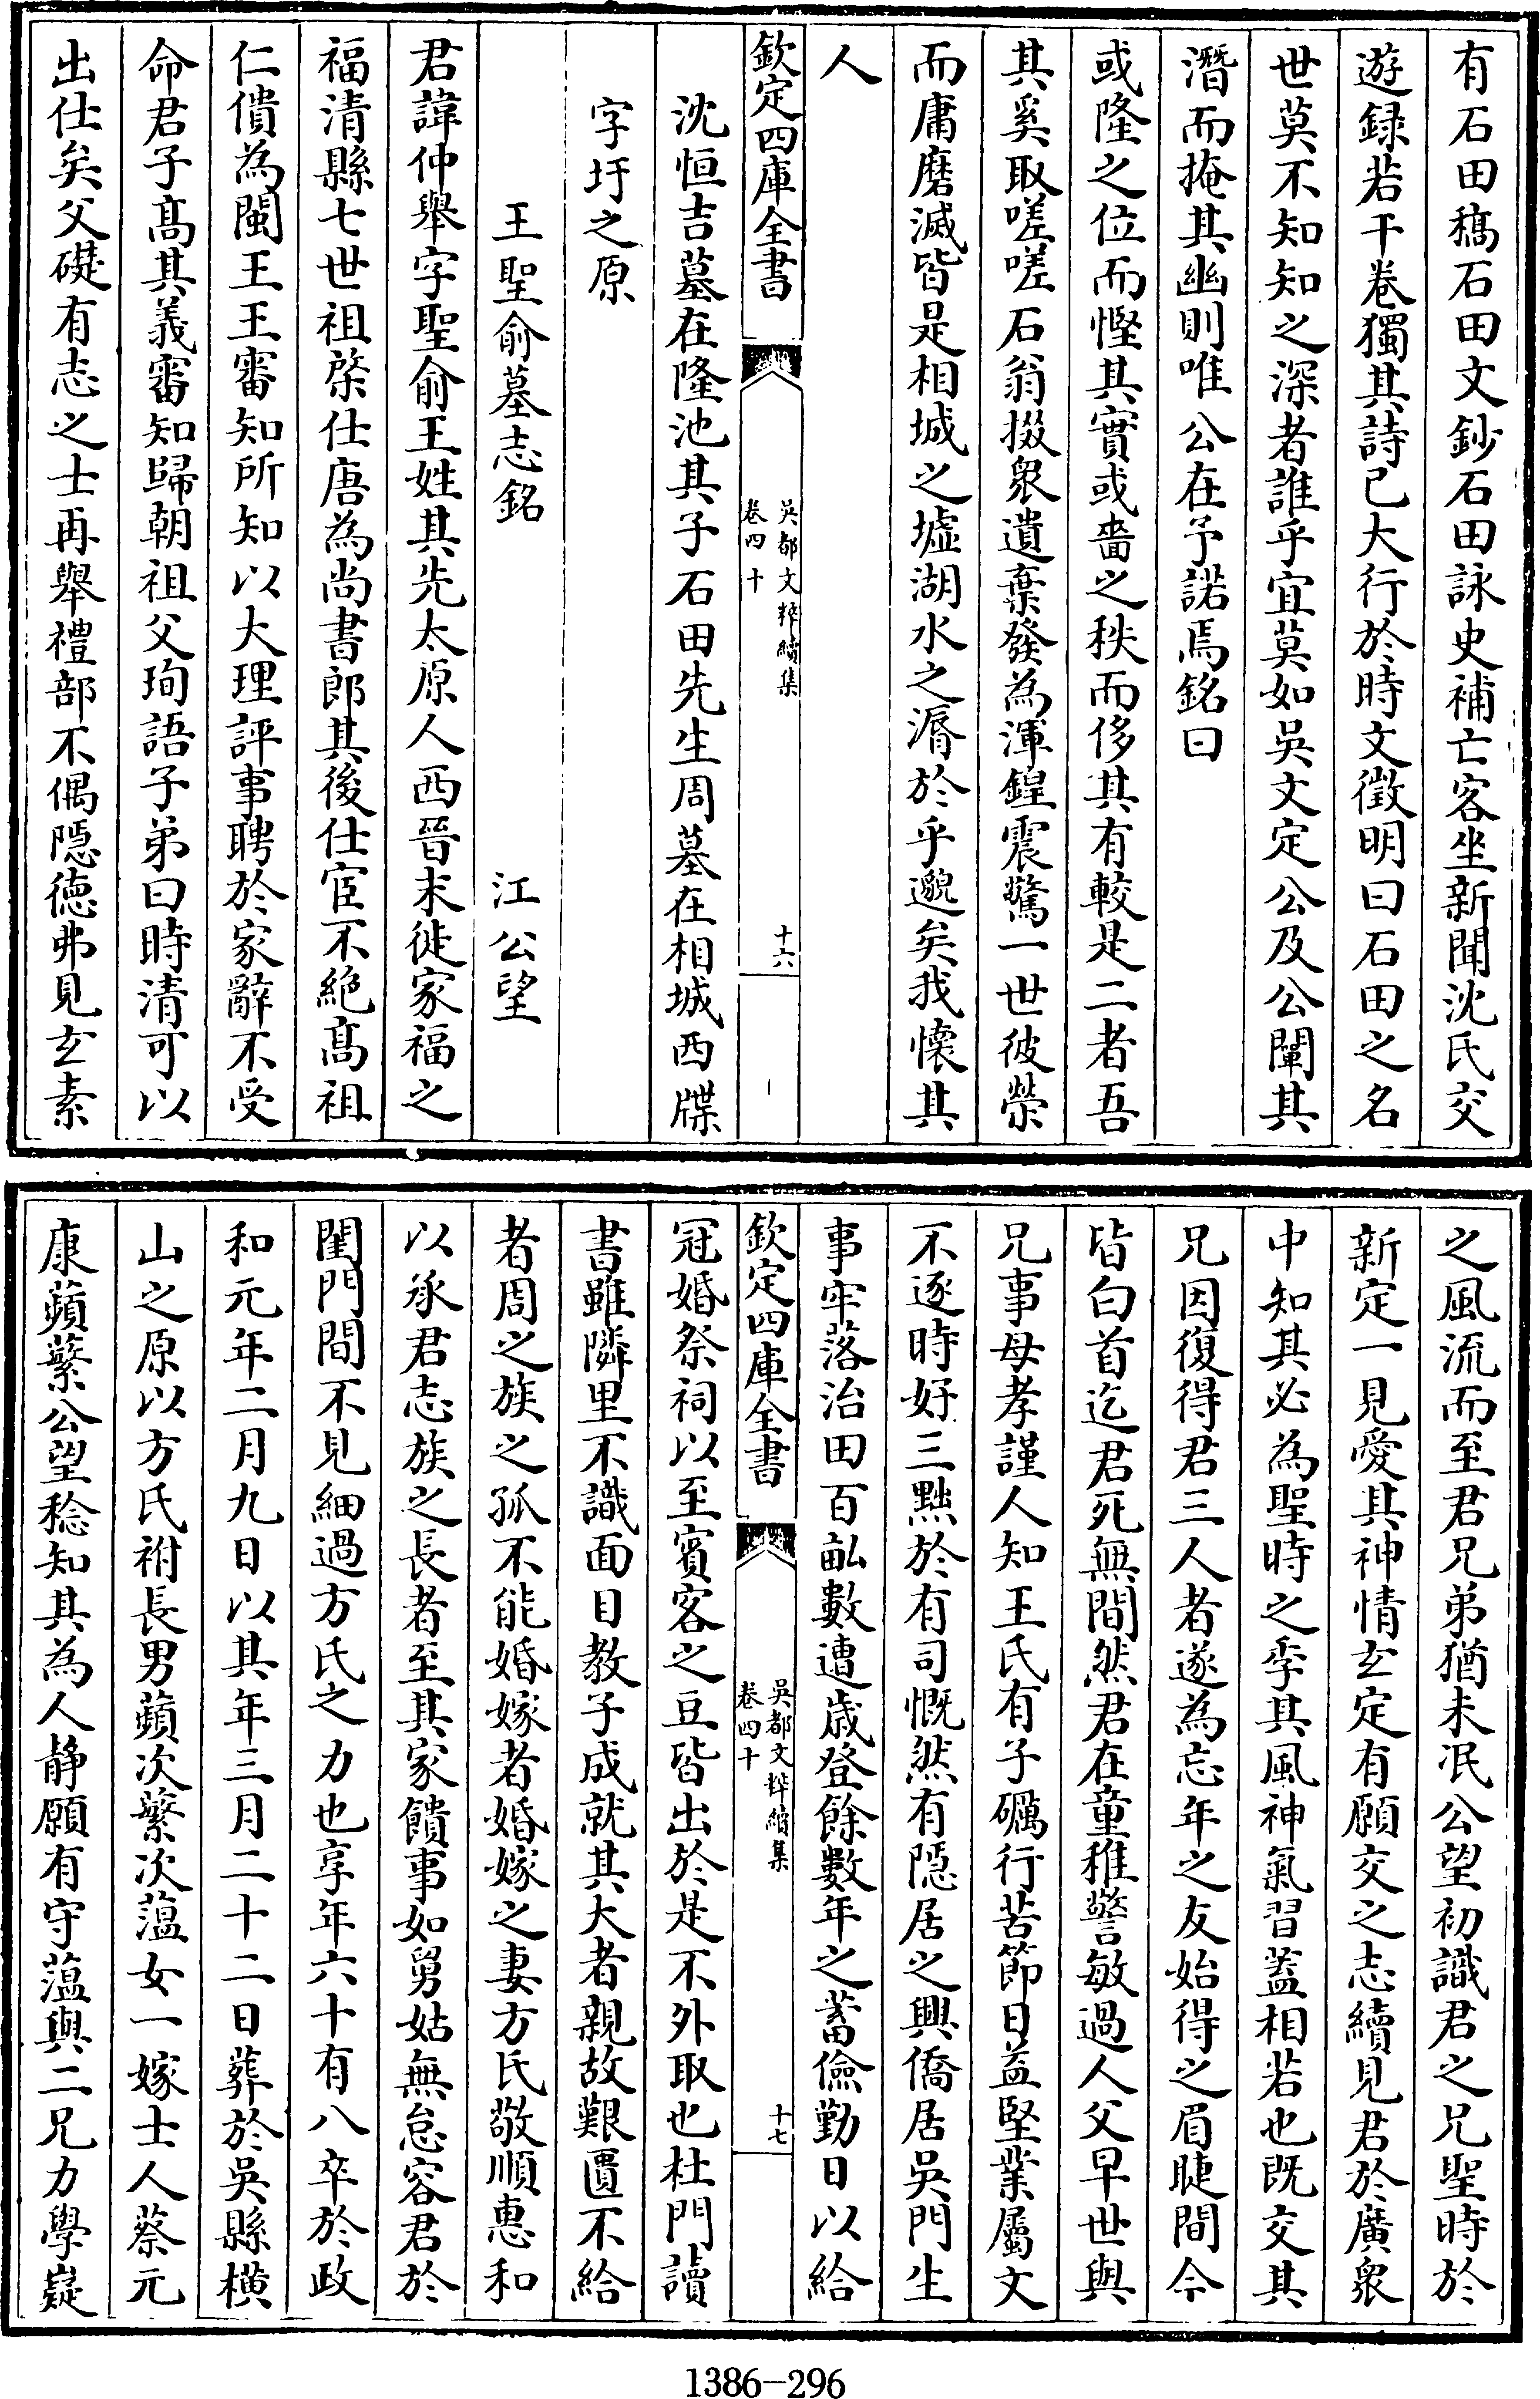 有石田稿石田文鈔石田詠史補亡客坐新聞沈氏交
遊録若干卷獨其詩已大行於時文徵明曰石田之名
世莫不知知之深者誰乎宜莫如吳文定公及公闡其
潛而掩其幽則唯公在予諾焉銘曰
或隆之位而慳其實或嗇之秩而侈其有較是二者吾
其奚取嗟嗟石翁掇衆遺棄發為渾鍠震驚一世彼榮
而庸磨滅皆是相城之墟湖水之漘於乎邈矣我懷其
人
欽定四庫全書
吳都文粹續集
卷四十
十六
沈恒吉墓在隆池其子石田先生周墓在相城西牒
字圩之原
王聖俞墓志銘
江公望
君諱仲舉字聖俞王姓其先太原人西晉末徙家福之
福清縣七世祖棨仕唐為尚書郎其後仕宦不絶髙祖
仁僓為閩王王審知所知以大理評事聘於家辭不受
命君子髙其義審知歸朝祖父珣語子弟曰時清可以
出仕矣父礎有志之士再舉禮部不偶隠德弗見玄素
之風流而至君兄弟猶未泯公望初識君之兄聖時於
新定一見愛其神情玄定有願交之志續見君於廣衆
中知其必為聖時之季其風神氣習蓋相若也既交其
兄因復得君三人者遂為忘年之友始得之眉睫間今
皆白首迄君死無間然君在童稚警敏過人父早世與
兄事母孝謹人知王氏有子礪行苦節日益堅業屬文
不逐時好三黜於有司慨然有隠居之興僑居吳門生
事牢落治田百畝數遭歳登餘數年之蓄儉勤日以給
欽定四庫全書
吳都文粹續集
卷四十
十七
冠婚祭祠以至賓客之豆皆出於是不外取也杜門讀
書雖隣里不識面目教子成就其大者親故艱匱不給
者周之族之孤不能婚嫁者婚嫁之妻方氏敬順惠和
以承君志族之長者至其家饋事如舅姑無怠容君於
閨門間不見細過方氏之力也享年六十有八卒於政
和元年二月九日以其年三月二十二日葬於吳縣橫
山之原以方氏祔長男蘋次蘩次薀女一嫁士人蔡元
康蘋蘩公望稔知其為人静願有守薀與二兄力學嶷
1386-296